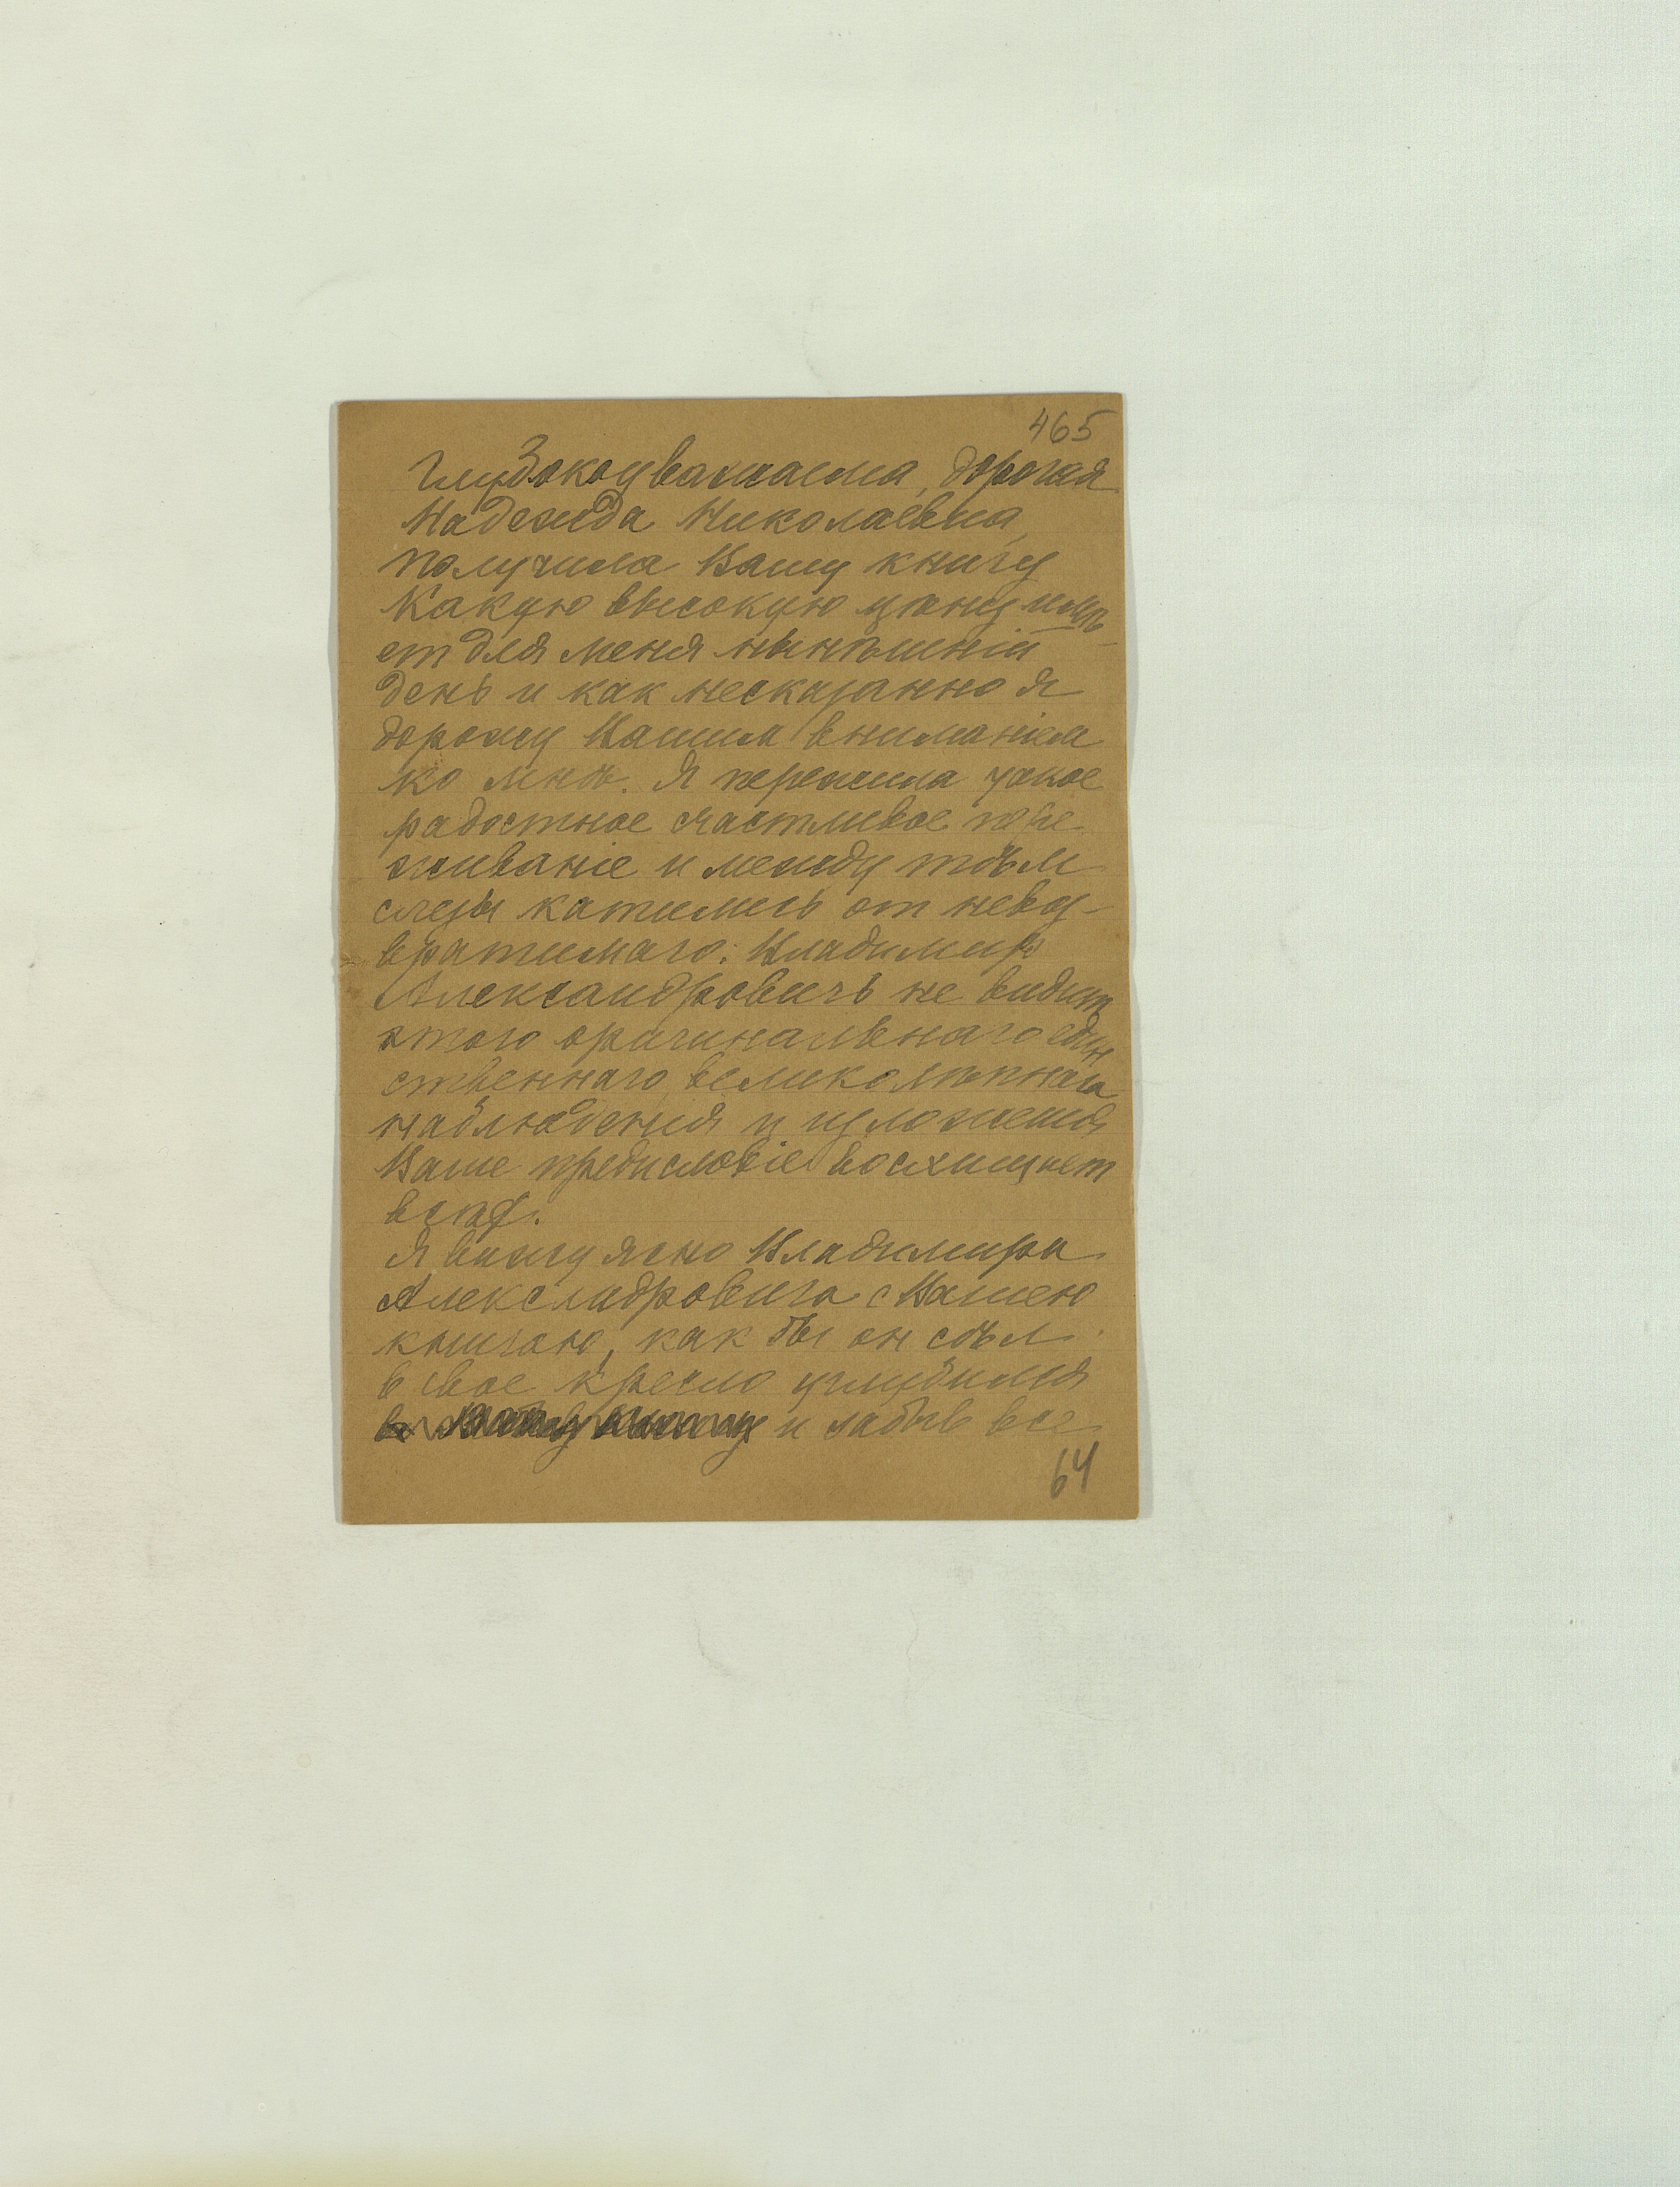 465
Глубокоуважаема, дорогая
Надежда Николаевна,
получила Вашу книгу
Какую высокую цѣну имѣ-
ет для меня нынѣшній
день и как несказанно я
дорожу Вашим вниманіем
ко мнѣ. Я пережила
радостное счастливое пере-
живаніе и между тѣм
слезы катились от невоз-
вратимаго: Владимир
Александровичъ не видит
этого оригинальнаго един
ственнаго великолѣпнаго
наблюдения и изложения
Ваше предисловіе восхищает
всѣх.
Я вижу ясно Владимира
Александровича с Вашею
книгою, как бы он сѣл
в свое кресло углубился
и забыв все
64